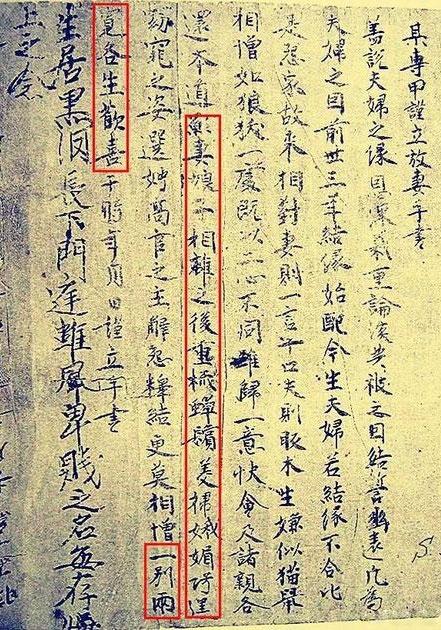 某專甲謹立放妻手書
盖說夫婦之緣恩深義重論談共被之因結誓幽遠凡為
夫婦之因前世三年結緣始配今生夫婦若結緣不合比
是怨家故來相對妻則一言十口夫則反木生嫌似猫鼠
相憎如狼一處既以二心不同難歸一意快會及諸親各
還本道願妻娘子相離之後重梳蟬鬢美掃娥媚巧逞
窈窕之姿選娉高官之主解怨釋結更莫相憎一別兩
寬各生歡喜于時年月日謹立手書
生居黑長下門雖風卑賤之名無存
上之念